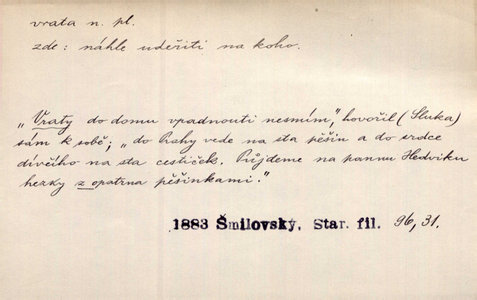 vrata n. pl.
zde: náhle udeřiti na koho.
„Vraty do domu vpadnouti nesmím," hovořil (Sluka)
sám k sobě; „do Prahy vede na sta pěšin a do srdce
dívčího na sta cestiček. Půjdeme na pannu Hedviku
hezky z opatrna pěšinkami."
1883 Šmilovský, Star. fil. 96, 31.